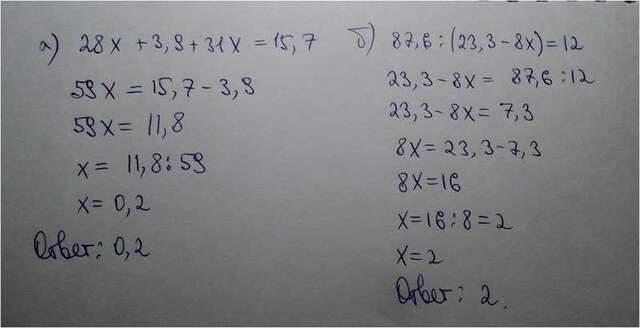 а) 28x + 3,9 + 31x = 15,7
59x = 15,7 - 3,9
59x = 11,8
x = 11,8 : 59
x = 0,2
Ответ: 0,2
б) 87,6 : (23,3 - 8x) = 12
23,3 - 8x = 87,6 : 12
23,3 - 8x = 7,3
8x = 23,3 - 7,3
8x = 16
x = 16 : 8 = 2
x = 2
Ответ: 2.